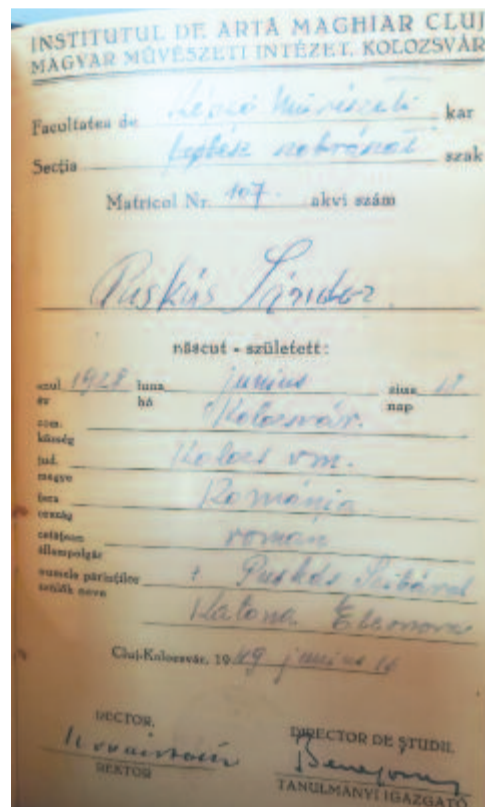 INSTITUTUL DE ARTA MAGHIAR CLUJ
MAGYAR MŰVÉSZETI INTÉZET, KOLOZSVÁR
Facultatea de Képző Művészeti kar
Secția szobrászat szak
Matricol Nr. 107. akvi szám
Puskás Sándor.
născut - született:
anul 1928 luna junius ziua
év hó nap
com. Kolozsvár.
község
jud. Kolozs vm.
megye
țara Románia
ország
cetățean roman
állampolgár
numele părinților + Puskás
szülők neve
Katona Eleonora
Cluj-Kolozsvár, 1949 junius
RECTOR, DIRECTOR DE STUDII,
REKTOR TANULMÁNYI IGAZGATÓ